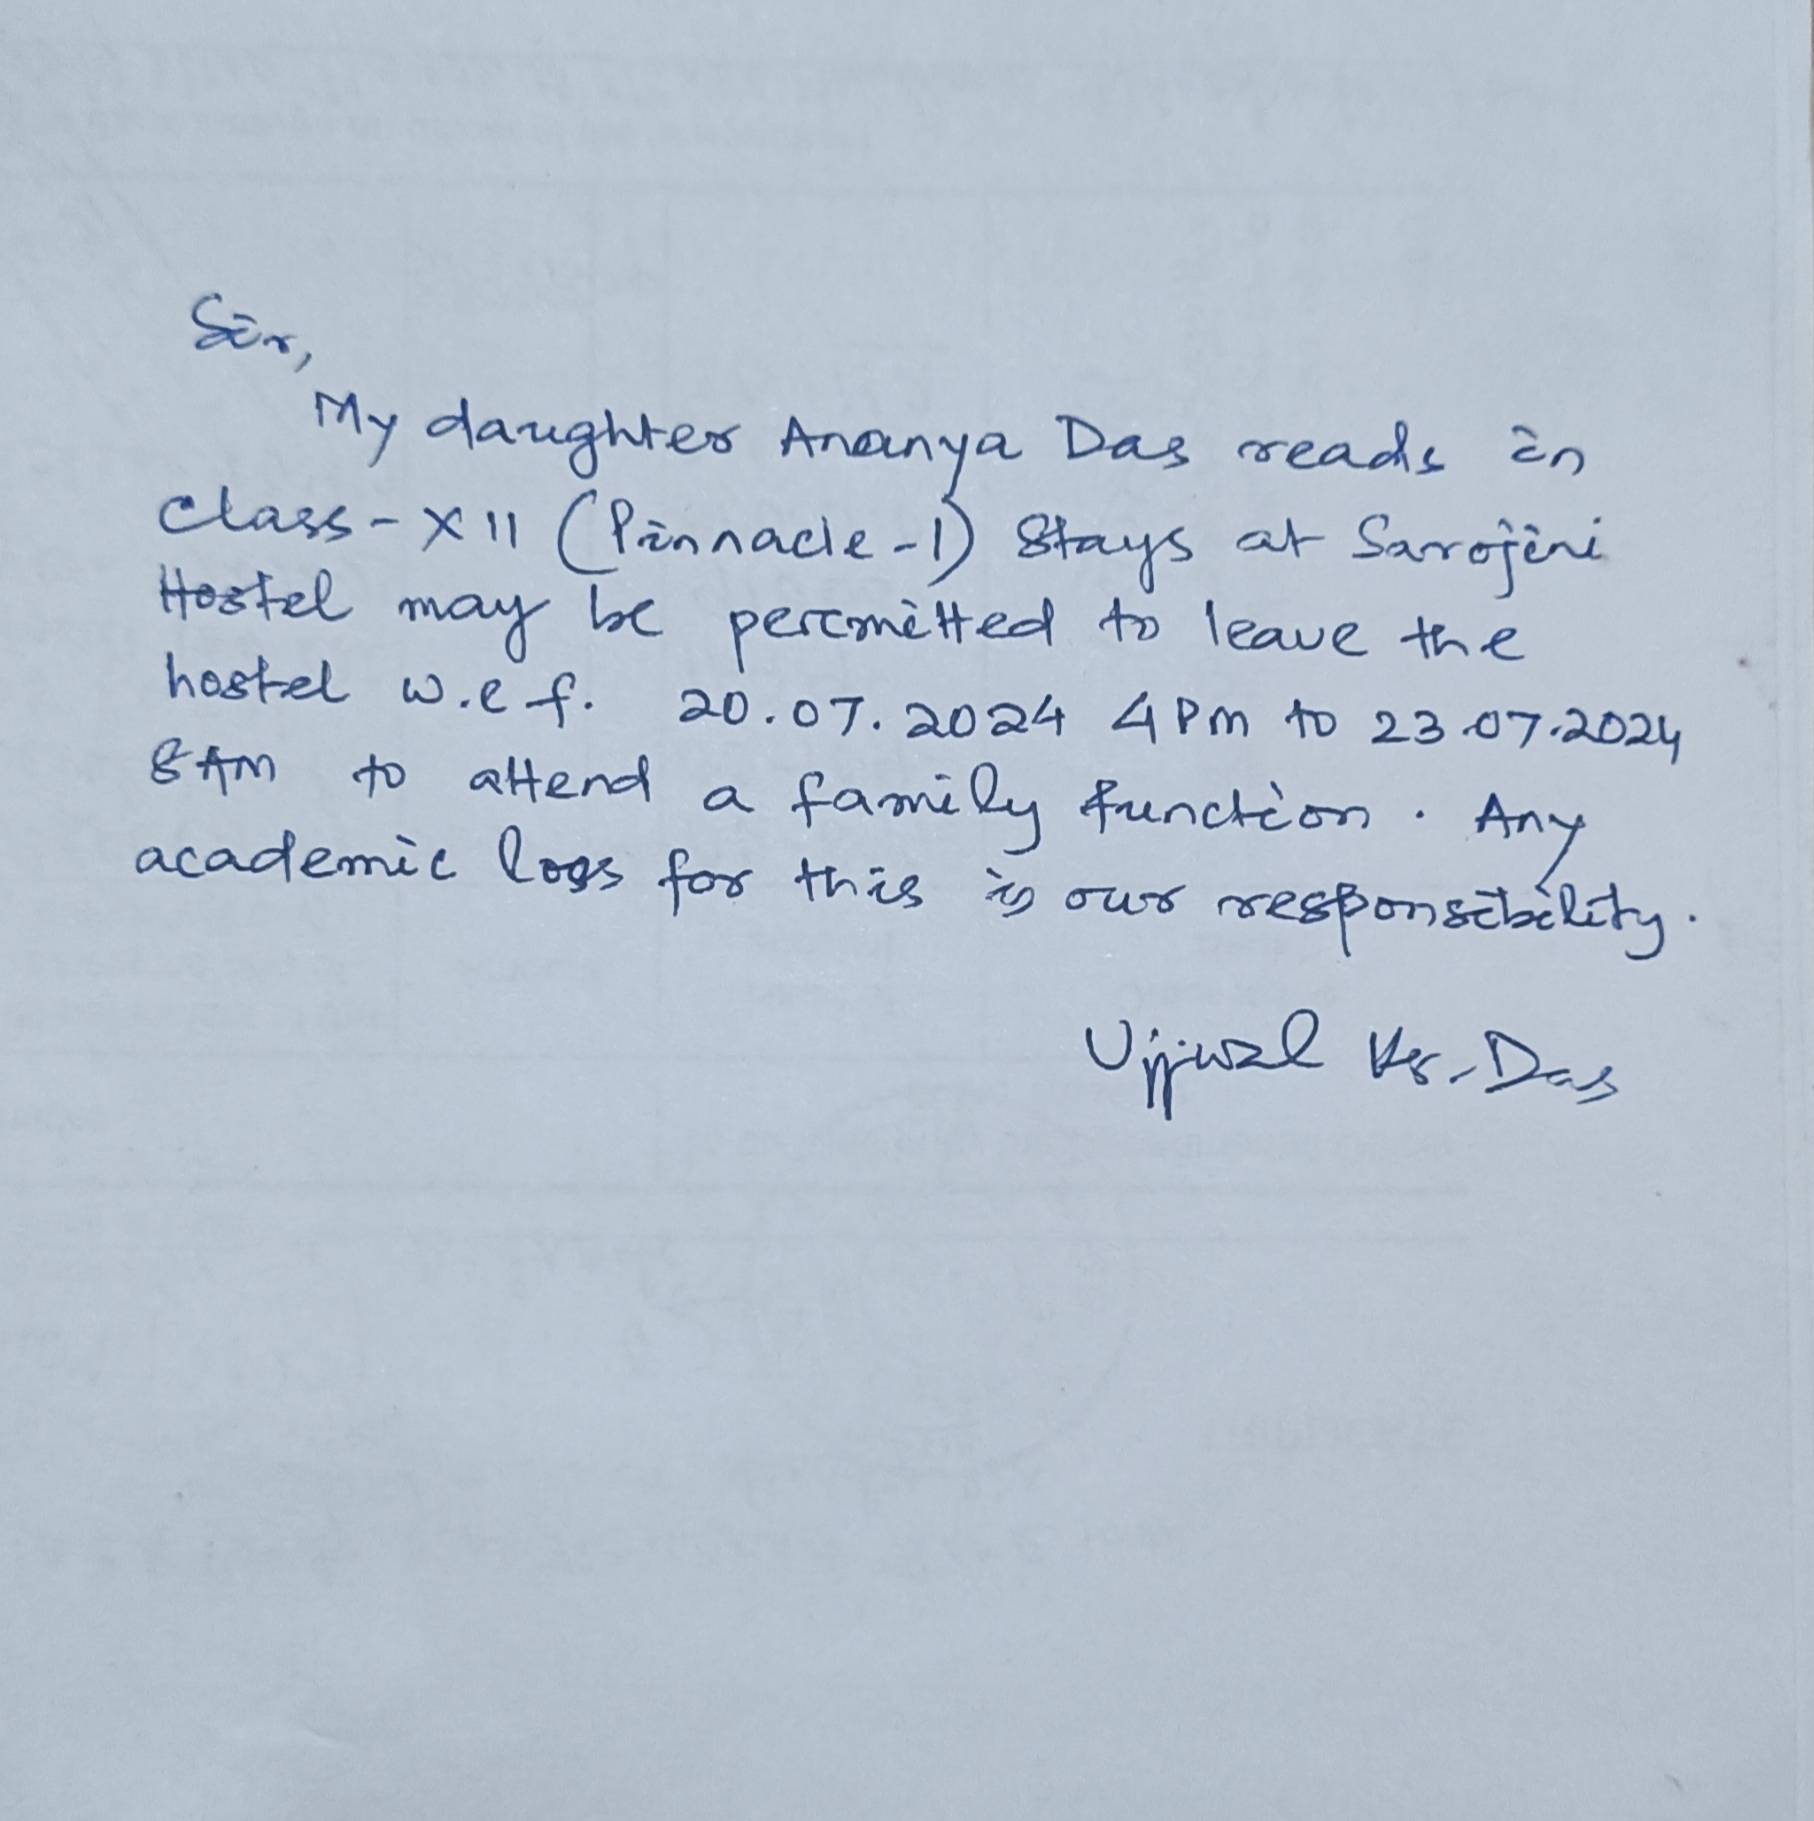 Sir,
My daughter Ananya Das reads in
class-XII (Pinnacle-1) Stays at Sarojini
Hostel may be permitted to leave the
hostel w.e.f. 20.07.2024 4PM to 23.07.2024
8AM to attend a family function. Any
academic loss for this is our responsibility.
Ujjwal Kr. Das